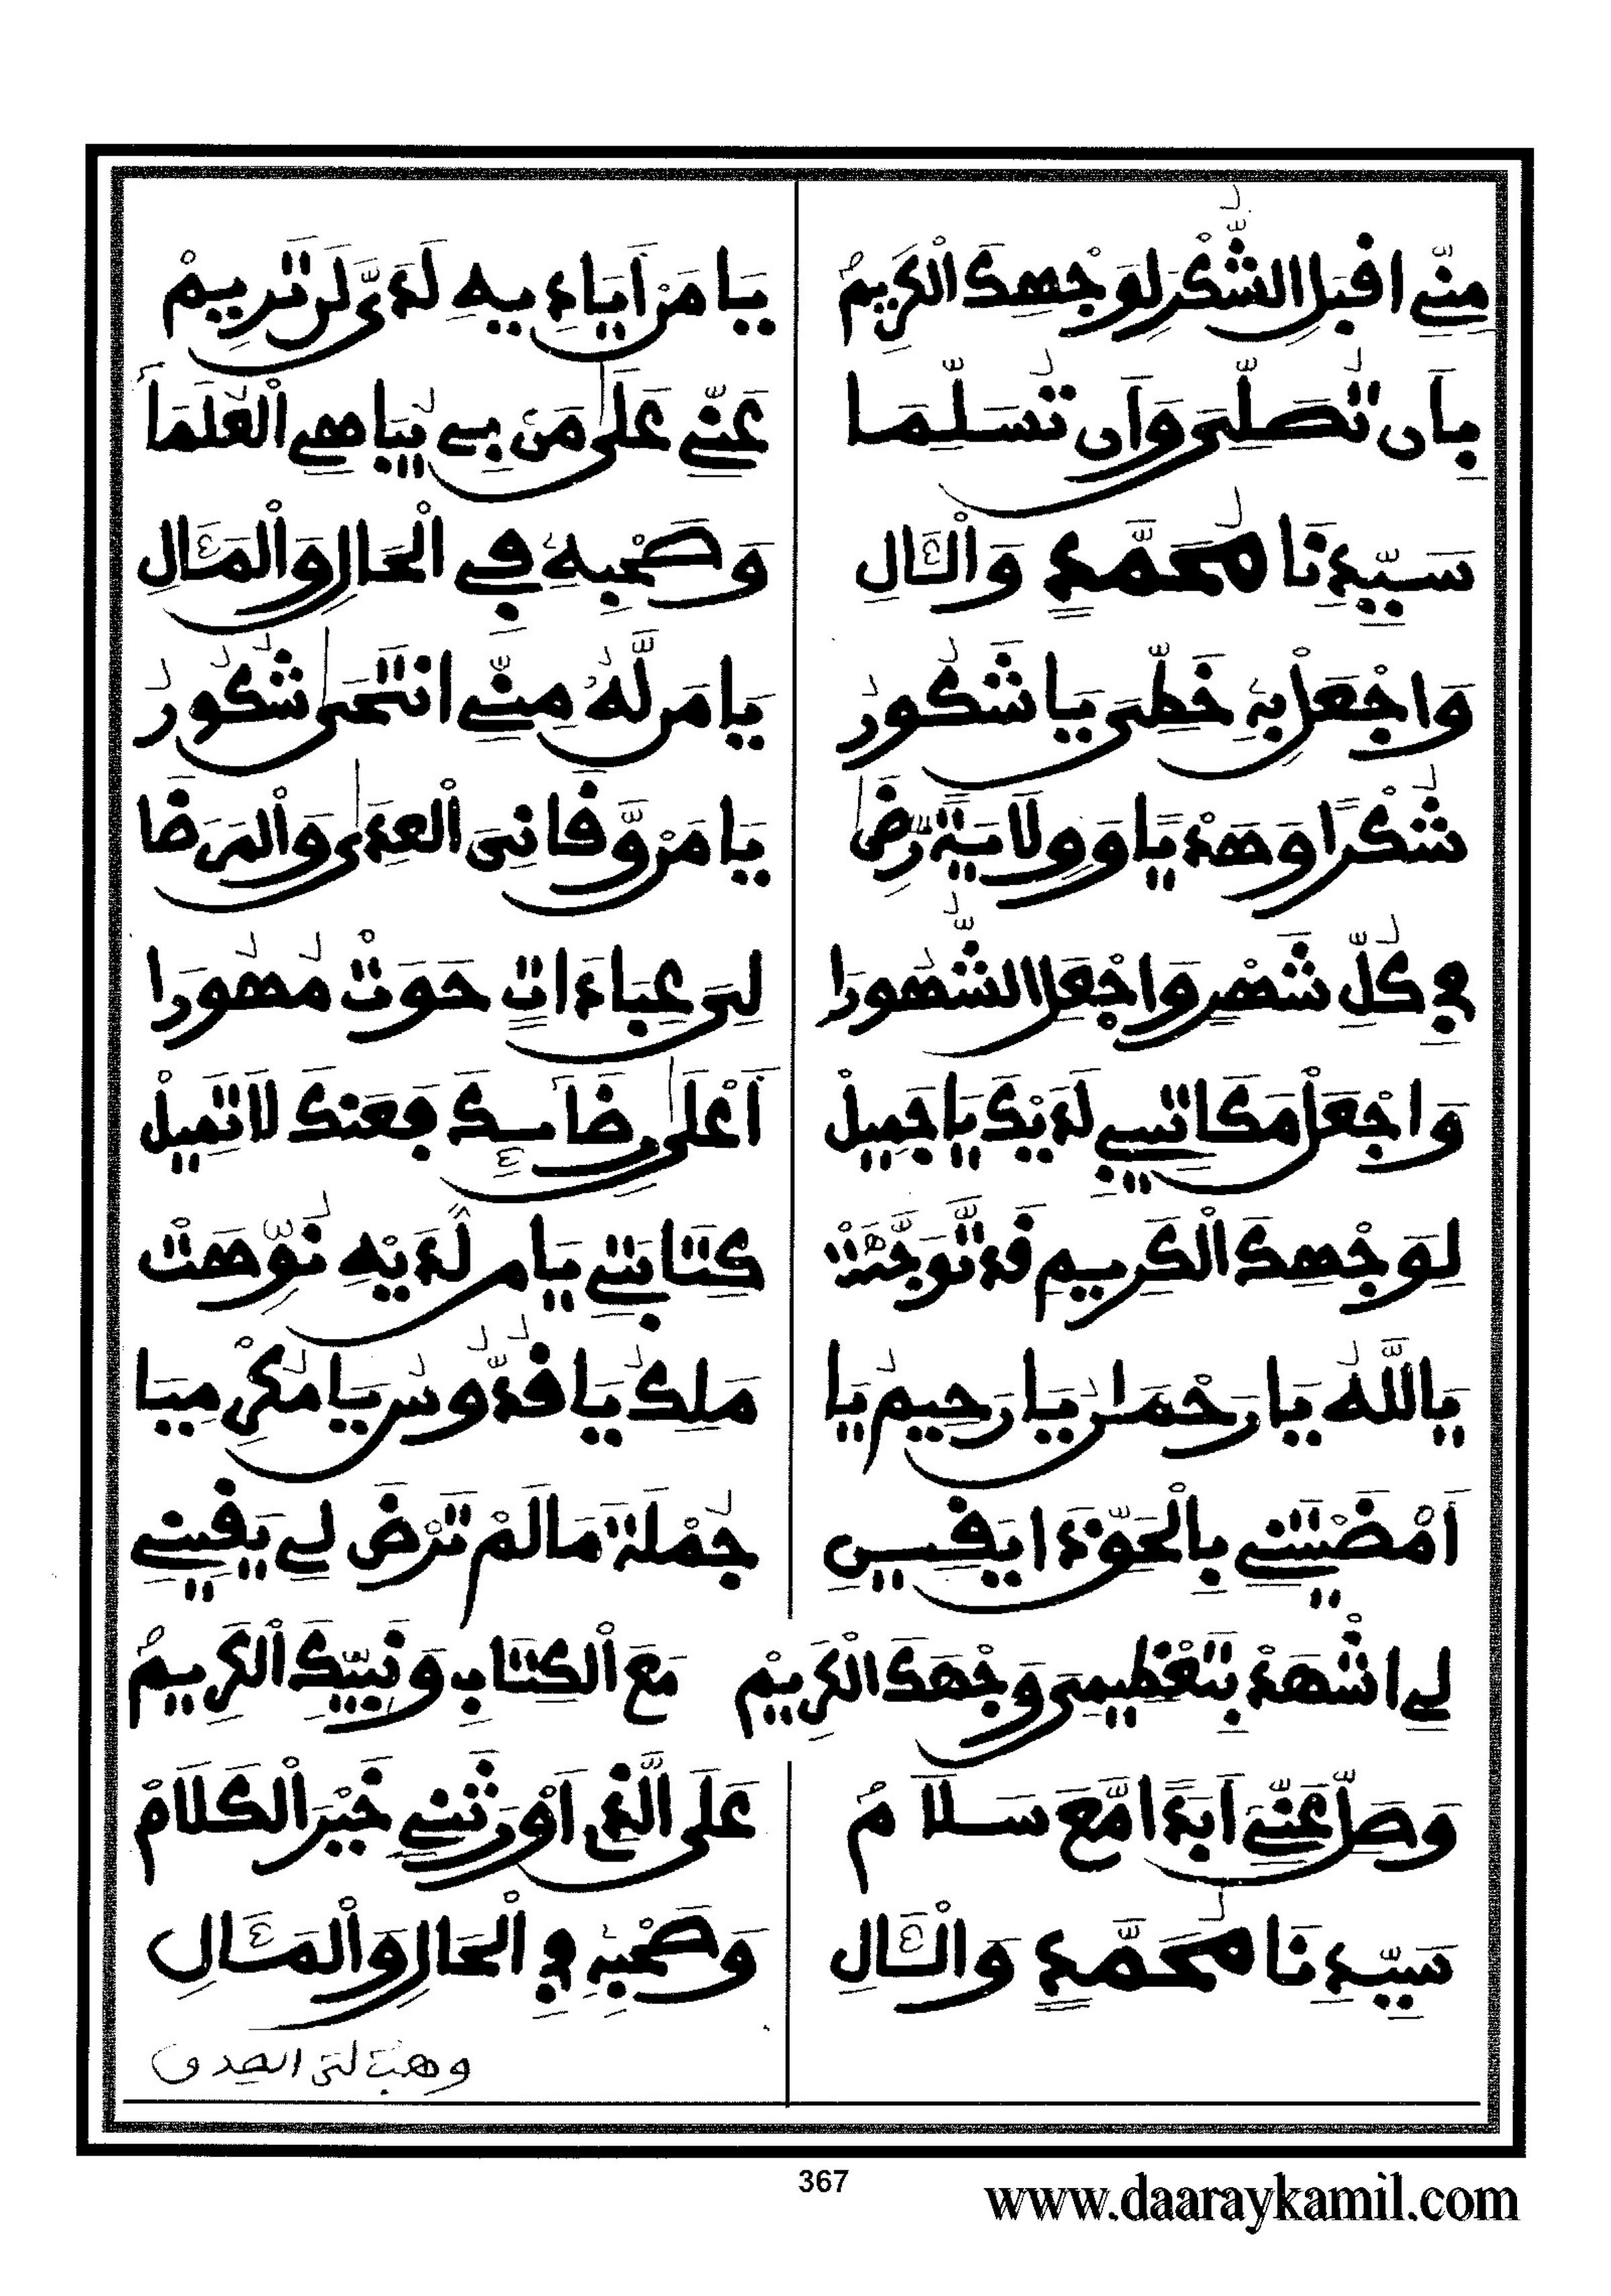 مِنِّي اقْبَلِ الشُّكْرَ لِوَجْهِكَ الْكَرِيمْ يَا مَنْ أَيَادِيهِ لَدَيَّ لَنْ تَرِيمْ
بِأَن تُصَلِّيَ وَأَن تُسَلِّمَا عَنِّي عَلَى مَنْ بِي يُبَاهِي الْعُلَمَا
سَيِّدِنَا مُحَمَّدٍ وَالْآلِ وَصَحْبِهِ فِي الْحَالِ وَالْمَآلِ
وَاجْعَلْ بِهِ خَطِّيَ يَا شَكُورُ يَا مَن لَّهُ مِنِّي انْتَحَى شُكُورُ
شُكْرًا وَهَدْيًا وَوِلَايَةً رِضَى يَا مَنْ وَّقَانِيَ الْعِدَى وَالْمَرَضَا
فِي كُلِّ شَهْرٍ وَاجْعَلِ الشُّهُورَا لِيَ عِبَادَاتٍ حَوَتْ مُهُورَا
وَاجْعَلْ مَكَاتِبِي لَدَيْكَ يَا جَمِيلْ أَعْلَى فَعَنْكَ لَا تَمِيلْ
لِوَجْهِكَ الْكَرِيمِ قَدْ تَوَجَّهَتْ كِتَابَتِي يَا مَن لَّدَيْهِ نُوِّهَتْ
يَا اللَّهُ يَا رَحْمَانُ يَا رَحِيمُ يَا مَلِكُ يَا قُدُّوسُ يَا مُكْرِمِيَا
أَمْضَيْتَنِي بِالْحَقِّ ذَا يَقِينِ جُمْلَةَ مَا لَمْ تَرْضَ لِي يَقِينِي
لِي اشْهَدْ بِتَعْظِيمِيَ وَجْهَكَ الْكَرِيمْ مَعَ الْكِتَابِ وَنَبِيِّكَ الْكَرِيمْ
وَصَلِّ عَنِّي أَبَدًا مَّعَ سَلَامْ عَلَى الَّذِي أَوْرَثَنِي خَيْرَ الْكَلَامْ
سَيِّدِنَا مُحَمَّدٍ وَالْآلِ وَصَحْبِهِ فِي الْحَالِ وَالْمَآلِ
وهبت لي الصدق
367
www.daaraykamil.com